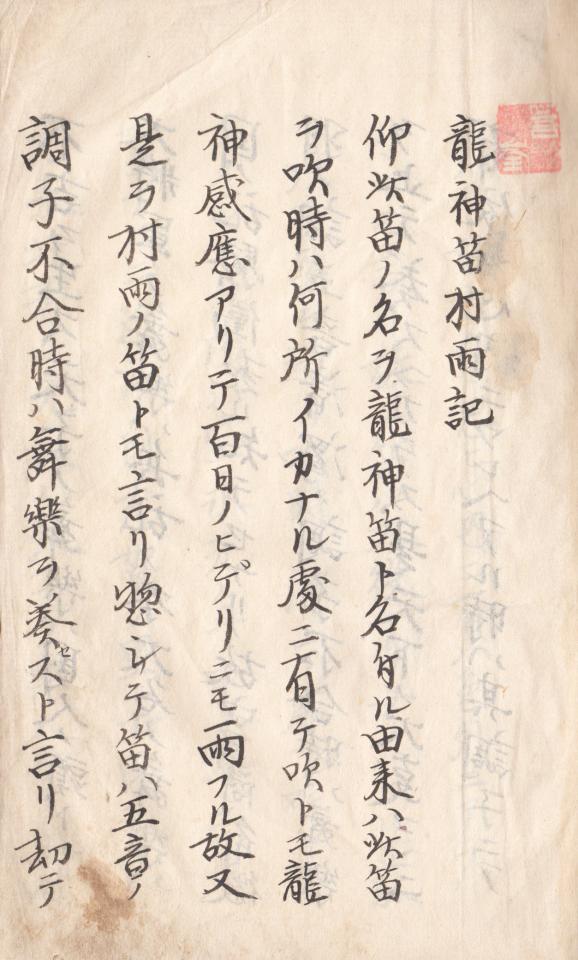 龍神笛村雨記
仰此笛ノ名ヲ龍神笛ト名付ル由来ハ此笛
ヲ吹時ハ何所イカナル處ニ有テ吹トモ龍
神感應アリテ百日ノヒデリニモ雨フル故又
是ヲ村雨ノ笛トモ言リ惣シテ笛ハ五音ノ
調子不合時ハ舞樂ヲ奏セスト言リ却テ